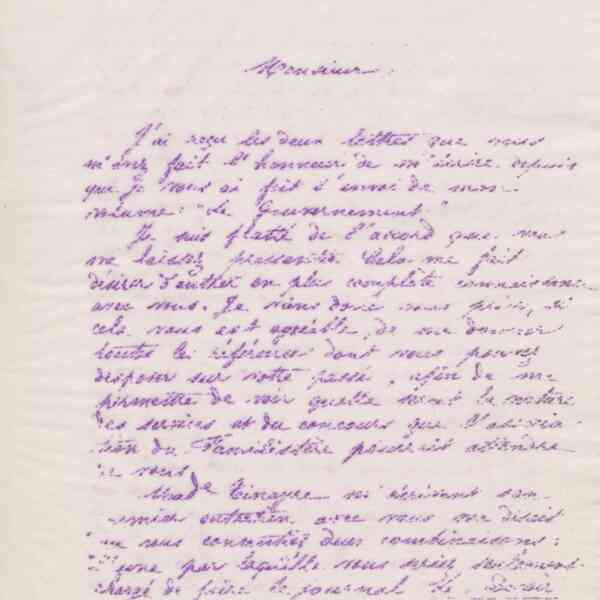 Monsieur,
J'ai reçu les deux lettres que vous
m'avez fait l'honneur de m'écrire depuis
que je vous ai fait l'envoi de mon
volume: "Le Gouvernement".
Je suis flatté de l'accord que vous
me laissez pressentir. Cela me fait
désirer d'entrer en plus complète connaissance
avec vous. Je viens donc vous prier, si
cela vous est agréable, de me donner
toutes les références dont vous pouvez
disposer sur votre passé, afin de me
permettre de voir quelle serait la nature
des services et du concours que l'associa-
tion du Familistère pourrait attendre
de vous.
Made Tinayre en écrivant son
entretien avec vous me disait
que vous consentiez deux combinaisons:
l'une par laquelle vous seriez seulement
chargé de faire le journal le Devoir